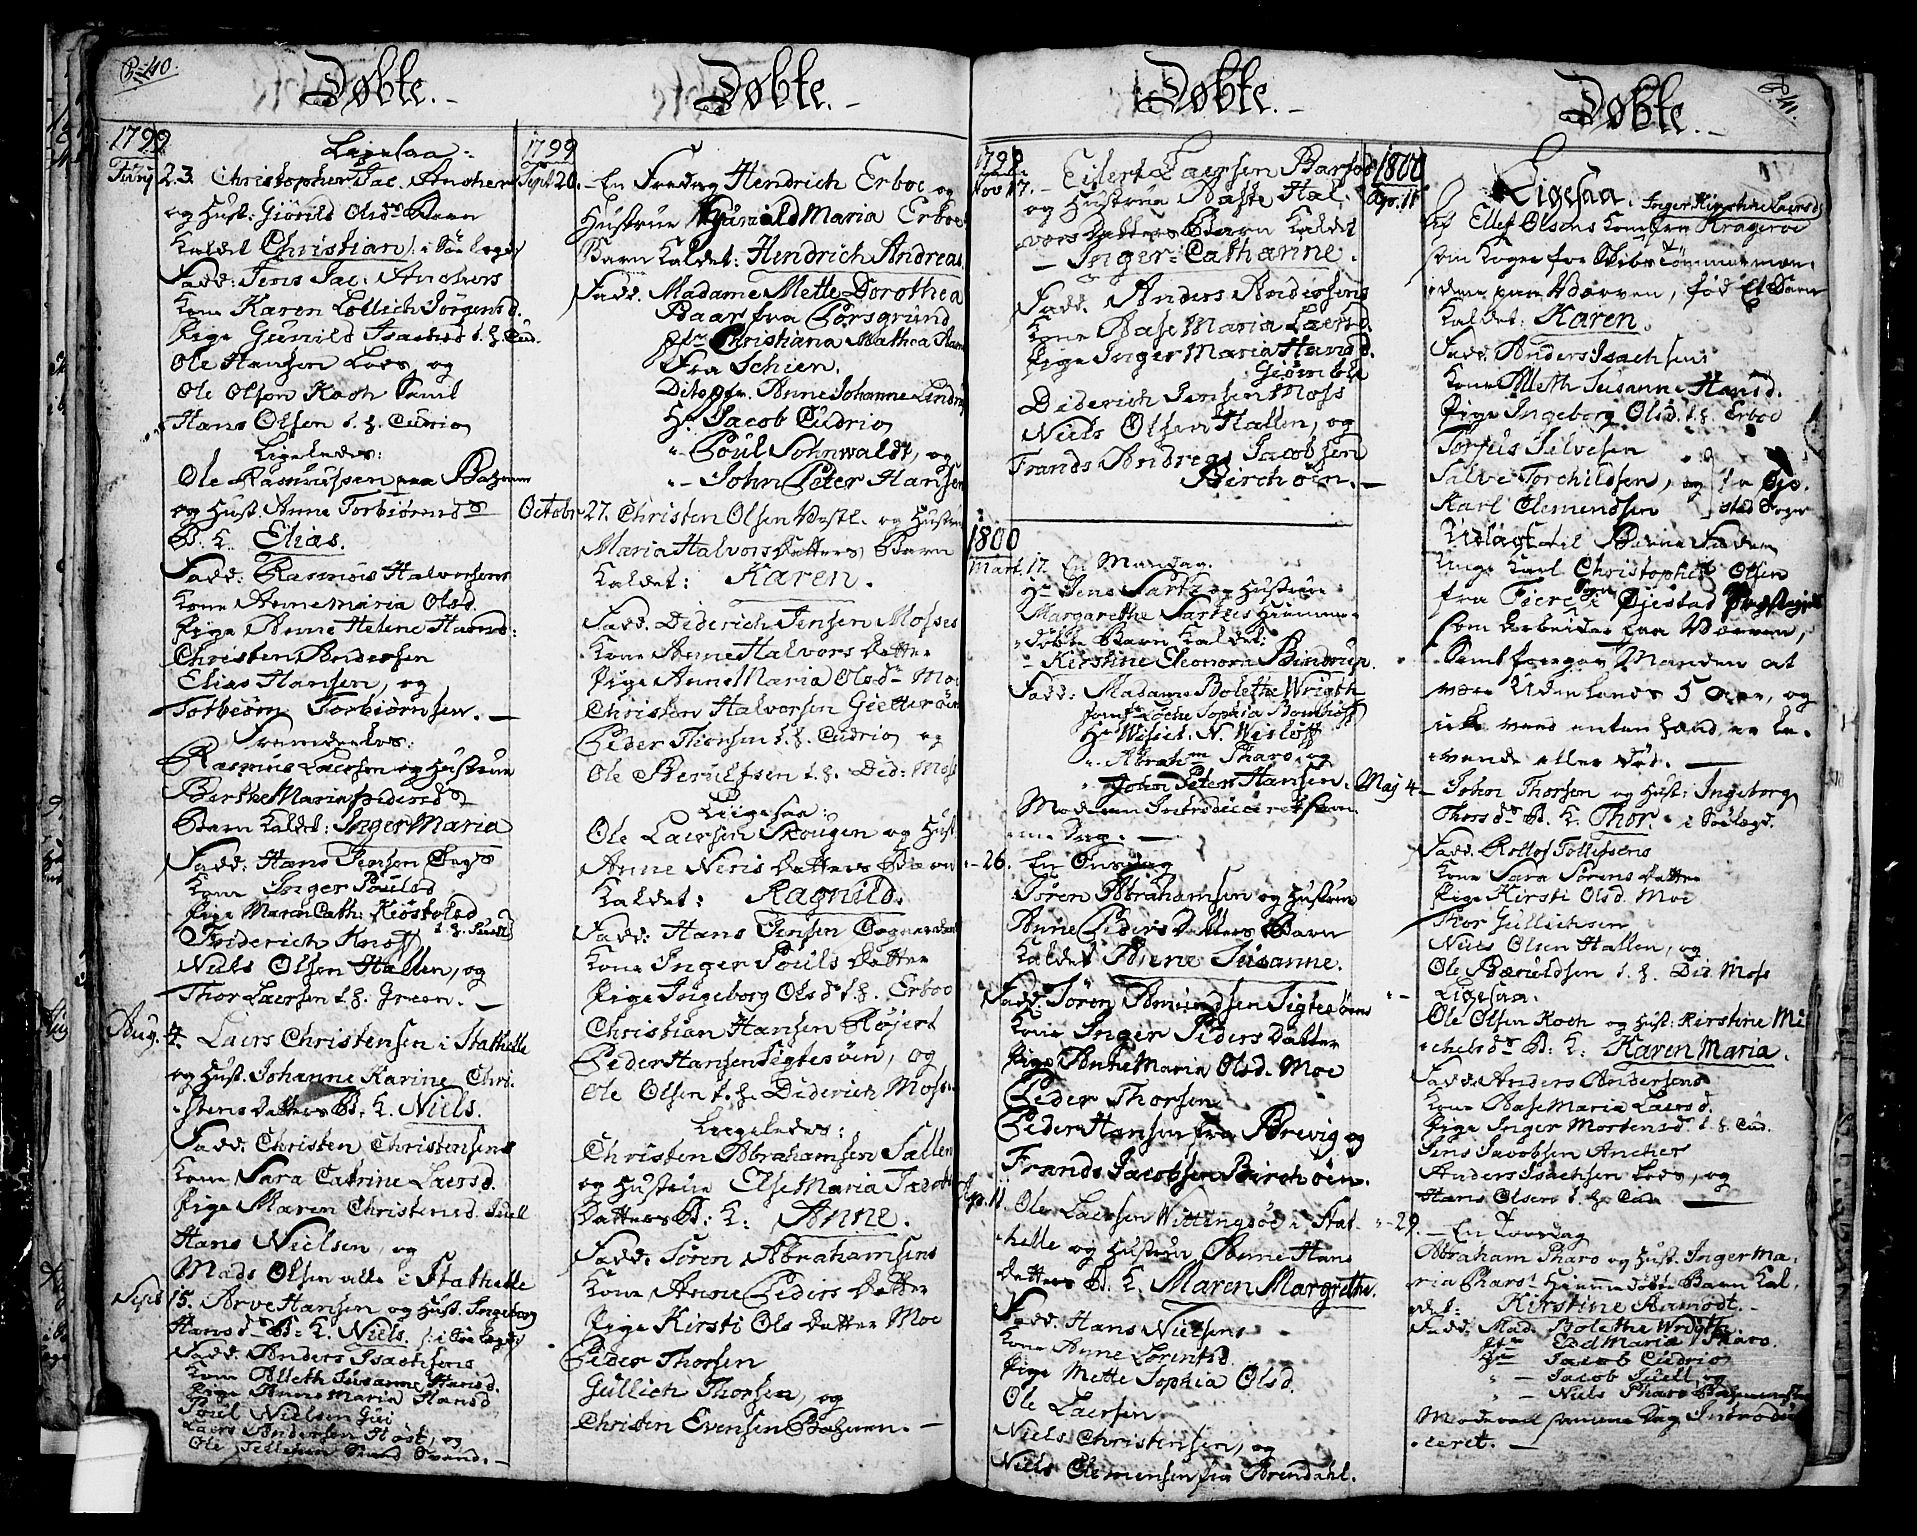 P. 40.
Døbte.
1799
Ligesaa:
Junij 23. Christopher Jac. Ancher
og Hust: Giönild Olsdr Barn
kaldet Christian
Fadd: Jens Jac: Anchers
Kone Karen Lollich Jörgensd.
Pige Gunild Isachsd t. h. Cud.
Ole Hansen Lods, og
Ole Olsen Koch samt
Hans Olsen t. h. Cudrio
Ligeledes:
Ole Rasmussen paa
og Hust. Anne Torbiörnsdr
B. K. Elias.
Fadd: Rasmus Halvorsens
Kone Anne Maria Olsd.
Pige Anne Helene Hansd:
Christen Andersen
Elias Hansen, og
Torbiörn Torbiörnsen.
Fremdeeles:
Rasmus Laersen og Hustrue
Berthe Maria Pedersdr
Barn kaldet: Inger Maria
Fadd: Hans Jensen
Kone Inger Poulsd
Pige Maren Cath: Kiöstolsd
Friderich Knoff
Niels Olsen Hallen, og
Thor Laersen t. h. Green.
Aug. 4. Laers Christensen i Stathelle
og Hust. Johanne Karine Chri-
stens datters B: K. Niels.
Fadd. Christen Christensens
Kone Sara Catrine Laersd.
Pige Maren Christensd.
Hans Nielsen, og
Mads Olsen alle i Stathelle
15. Arve Hansen og Hust. Ingeborg
Hansdr B: K. Niels.
Fadd. Anders Isachsens
Kone Alleth Susanne Hansd.
Pige Anne Maria Hansd
Poul Nielsen
Laers Andersen Höst, og
Ole Tellefsen
Døbte.
1799
Sept 20. En Fredag Hendrich Erboe og
Hustrue Gunild Maria Erboe
Barn kaldet: Hendrich Andreas.
Fadd. Madame Mette Dorothea
Baar fra Porsgrund
Christiana Mathea
Fra Schien.
Dito Anne Johanne
Hr Jacob Cudrio
Poul Sohnwaldt, og
John Peter Hansen
Octobr 27. Christen Olsen og Hustru
Maria Halvors datters Barn
kaldet: Karen.
Fadd. Diderich Jensen Mosses
Kone Anne Halvors datter
Pige Anne Maria Olsdr Moe
Christen Halvorsen Gietterøen
Peder Thorsen t. h. Cudrio og
Ole Berulfsen t. h. Did: Moss
Ligesaa:
Ole Laersen Skougen og Hust
Anne Niris datters Barn
kaldet: Ragnild.
Fadd: Hans Jensen
Kone Inger Pouls datter
Pige Ingeborg Olsdr t. h. Erboe
Christian Hansen Røjert
Peder Hansen Sigtesøen, og
Ole Olsen t. h. Diderich Moss.
Ligeledes:
Christen Abrahamsen Sallen
og Hustrue Else Maria Jacobs
datters B: K: Anne.
Fadd. Sören Abrahamsens
Kone Anne Peders datter
Pige Kirsti Ols datter Moe
Peder Thorsen
Gullich Thorsen, og
Christen Evensen
Døbte.
1799
Nov 17. Eilert Laersen Barfod
og Hustrue Aaste Hal-
vors datters Barn kaldet
Inger Cathrine.
Fadd. Anders Andersens
Kone Aase Maria Laersd.
Pige Inger Maria Hansd.
Diderich Jensen Moss
Niels Olsen Hallen, og
Frands Andreas Jacobsen
Birchøen.
1800
Mart. 17. En Mandag.
Hr Jens og Hustrue
Margarethe Hiemme-
døbte Barn kaldet:
Kirstine Eleonora Bindrup.
Fadd: Madame Bolethe Wrigth
Sophia
Hr N. Wisloff
Abrahm Pharo, og
John Peter Hansen.
Moderen Introduceret samme
Dag.
26. En Onsdag
Sören Abrahamsen og Hustrue
Anne Peders datters Barn
kaldet Anne Susanne.
Fadd. Sören Amundsen Sigtesøens
Kone Inger Peders datter
Pige Anne Maria Olsd. Moe
Peder Thorsen
Peder Hansen fra Brevig og
Frands Jacobsen Birchøen.
Apr. 11. Ole Laersen Wittingsöe i Stat-
helle og Hustrue Anne Hans
datters B. K. Maren Margrethe.
Fadd. Hans Nielsens
Kone Anne Lorentsd.
Pige Mette Sophia Olsd.
Ole Laersen
Niels Christensen, og
Niels Clemensen fra Arendahl.
P. 41.
Døbte.
1800
Apr. 11
Ligesaa.
Inger Kirstine Laersd
Ellef Olsens Kone fra Kragerøe
som koger for Skibs Tømmermæn-
dene paa Værven, fød Et Barn
kaldet: Karen.
Fadd. Anders Isachsens
Kone Alleth Susanne Hansd.
Pige Ingeborg Olsd. t. h. Erboe
Torfels Silvesen
Salve Torchildsen, og
Karl Clemendsen
fra Øje-
stad Sogn
Udlagt til Barne Fader
Unge Karl Christopher Olsen
fra Øjestad
som arbeider paa Værven,
samt foregav Manden at
være Udenlands 5 Aar, og
ikke veed enten hand er le-
vende eller død.
Maj 4. John Thorsen og Hust: Ingeborg
Thorsdr B. K. Thor.
Fadd. Rollof Tollefsens
Kone Sara Sörens datter
Pige Kirsti Olsd. Moe
Thor Gullichsen
Niels Olsen Hallen, og
Ole Bæruldsen t. h. Did. Moss
Ligesaa.
Ole Olsen Koch og Hust: Kirstine Mi-
chelsdr B: K: Karen Maria.
Fadd. Anders Andersens
Kone Aase Maria Laersd.
Pige Inger Mortensd t. h. Cud.
Jens Jacobsen Ancher
Anders Isachsen Lods, og
Hans Olsen t. h. Cud.
29. En Torsdag
Abraham Pharo og Hust. Inger Ma-
ria Pharos Hiemmedøbte Barn kal-
det: Kirstine Aamodt.
Fadd. Mad. Bolethe Wrigth
Maria Pharo.
Jacob Cudrio
Jacob Juell, og
Niels Pharo
Moderen samme Dag Introdu-
ceret.